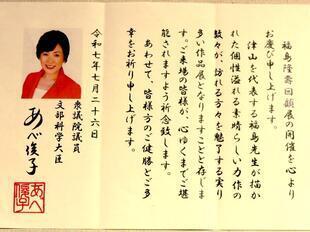 福島隆壽回顧展の開催を心より
お慶び申し上げます。
津山を代表する福島先生が描か
れた個性溢れる素晴らしい力作の
数々が、訪れる方々を魅了する実り
多い作品展となりますことと存じま
す。ご来場の皆様が、心ゆくまでご堪
能されますよう祈念致します。
あわせて、皆様方のご健勝とご多
幸をお祈り申し上げます。
令和七年七月二十六日
衆議院議員
文部科学大臣
あべ俊子